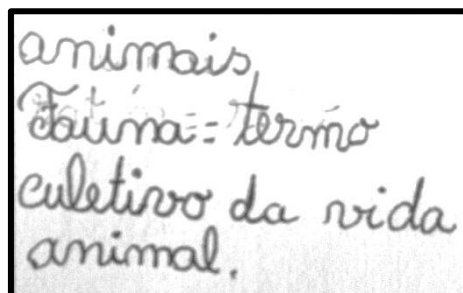 animais,
Fauna = termo
culetivo da vida
animal.